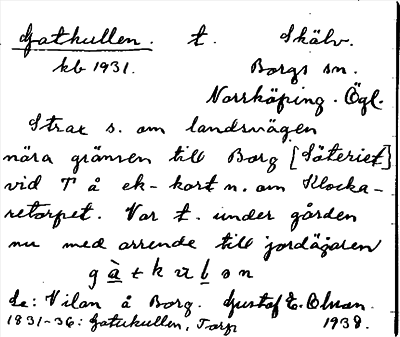 Gatkullen. t. Skälv.
kb 1931. Borgs sn.
Norrköping. Ögl.
Strax s. om landsvägen
nära gränsen till Borg [Säteriet]
vid T å ek-kort n. om Klocka-
retorpet. Var t. under gården
nu med arrende till jordägaren
g à t k u l ə n
Se: Vilan å Borg. Gustaf E. Olsson.
1831-36: Gatukullen, Torp 1938.